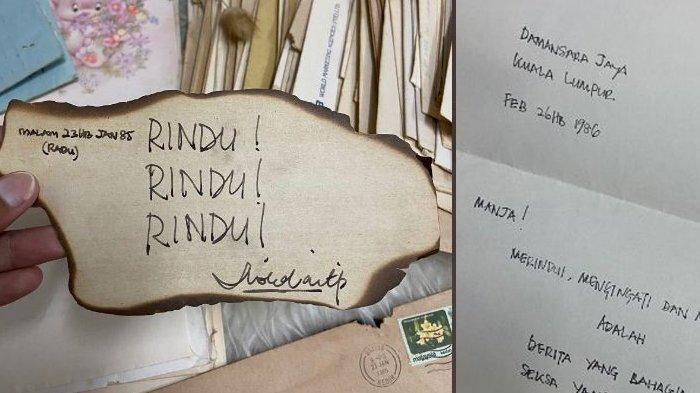 MALAM 23HB JAN 85
(RABU)
RINDU!
RINDU!
RINDU!
DAMANSARA JAYA
KUALA LUMPUR
FEB 26HB 1986
MANJA!
MERINDUI, MENGINGATI DAN
ADALAH
BERITA YANG
SEKSA